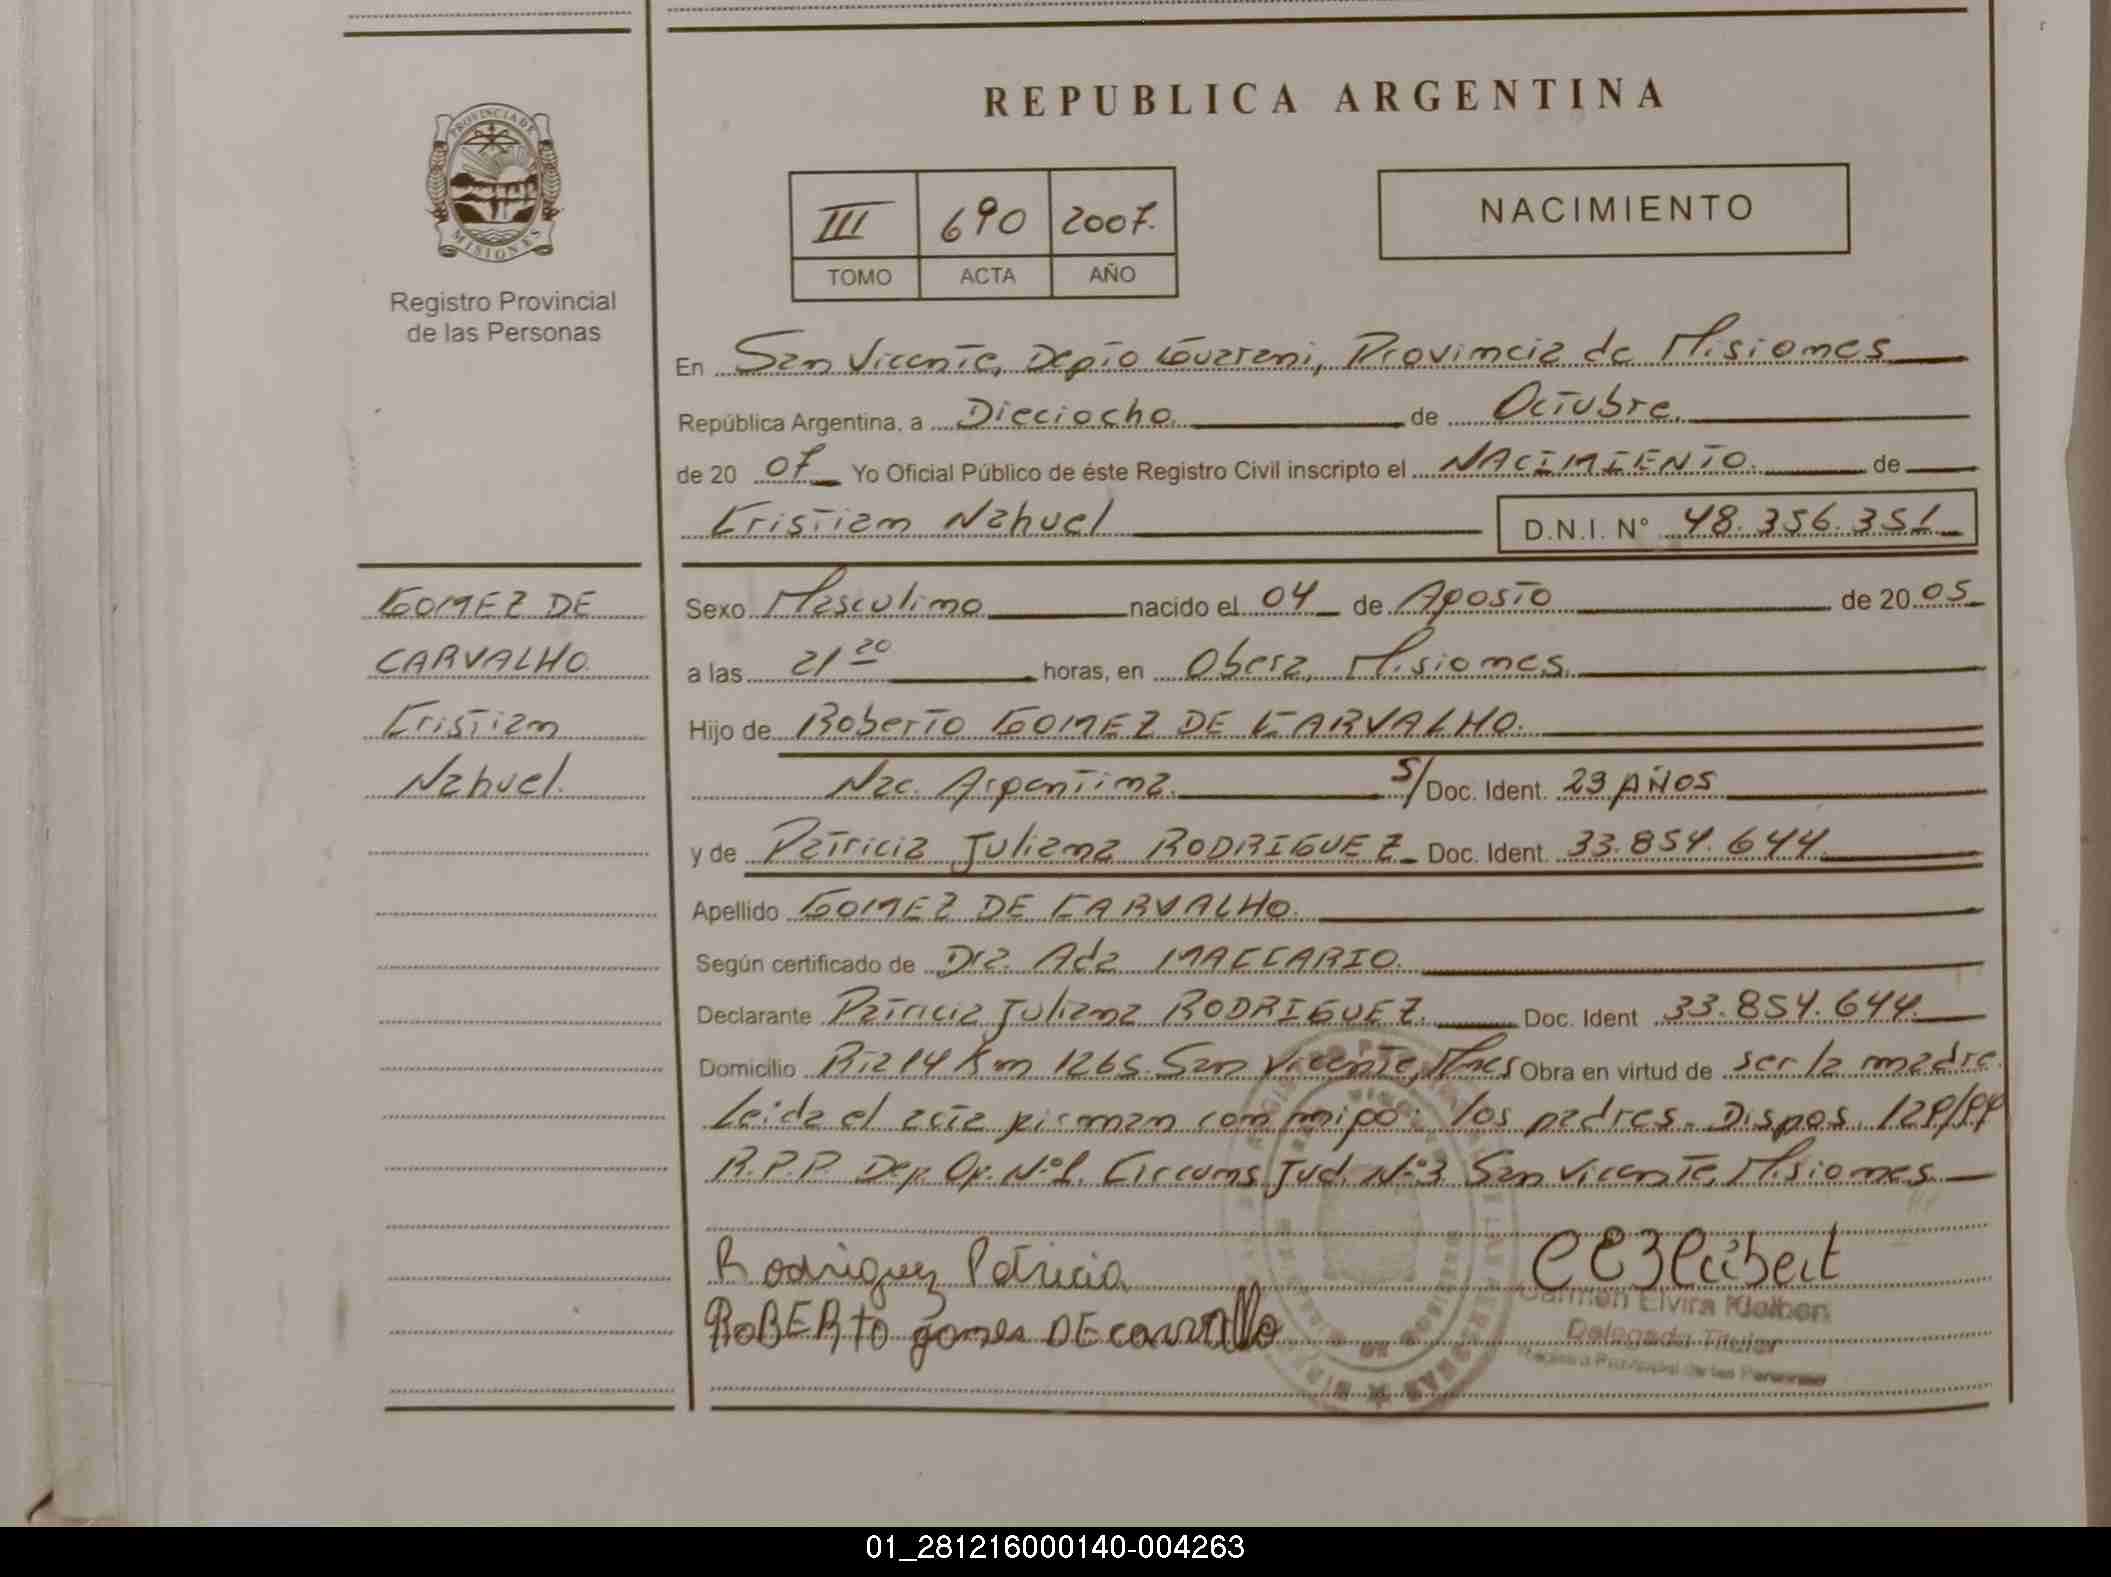 REPUBLICA ARGENTINA
PROVINCIA DE
MISIONES
Registro Provincial
de las Personas
III 690 2007.
TOMO ACTA AÑO
NACIMIENTO
En San Vicente, Depto Guarani, Provincia de Misiones
República Argentina, a Dieciocho de Octubre.
de 20 07 Yo Oficial Público de éste Registro Civil inscripto el NACIMIENTO. de
Cristian Nahuel D.N.I. N° 48.356.351
GOMEZ DE
CARVALHO.
Cristian
Nahuel.
Sexo Masculino nacido el 04 de Agosto de 20 05
a las 21 20 horas, en Obera, Misiones.
Hijo de Roberto GOMEZ DE CARVALHO.
Nac. Argentina. S/ Doc. Ident. 23 AÑOS
y de Patricia Juliana RODRIGUEZ Doc. Ident. 33.854.644
Apellido GOMEZ DE CARVALHO.
Según certificado de Dra. Ada MACCARIO.
Declarante Patricia Juliana RODRIGUEZ. Doc. Ident 33.854.644.
Domicilio Rta 14 Km 1265. San Vicente, Mnes Obra en virtud de ser la madre.
Leida el acta firman conmigo: los padres. Dispos. 129/99
R.P.P. Dep. Op. N°1, Circuns. Jud. N°3 San Vicente, Misiones.
Rodriguez Patricia
RoBERto gomes DE carvallo
Carmen Elvira
Delegada Titular
Registro Provincial de las Personas
01_281216000140-004263